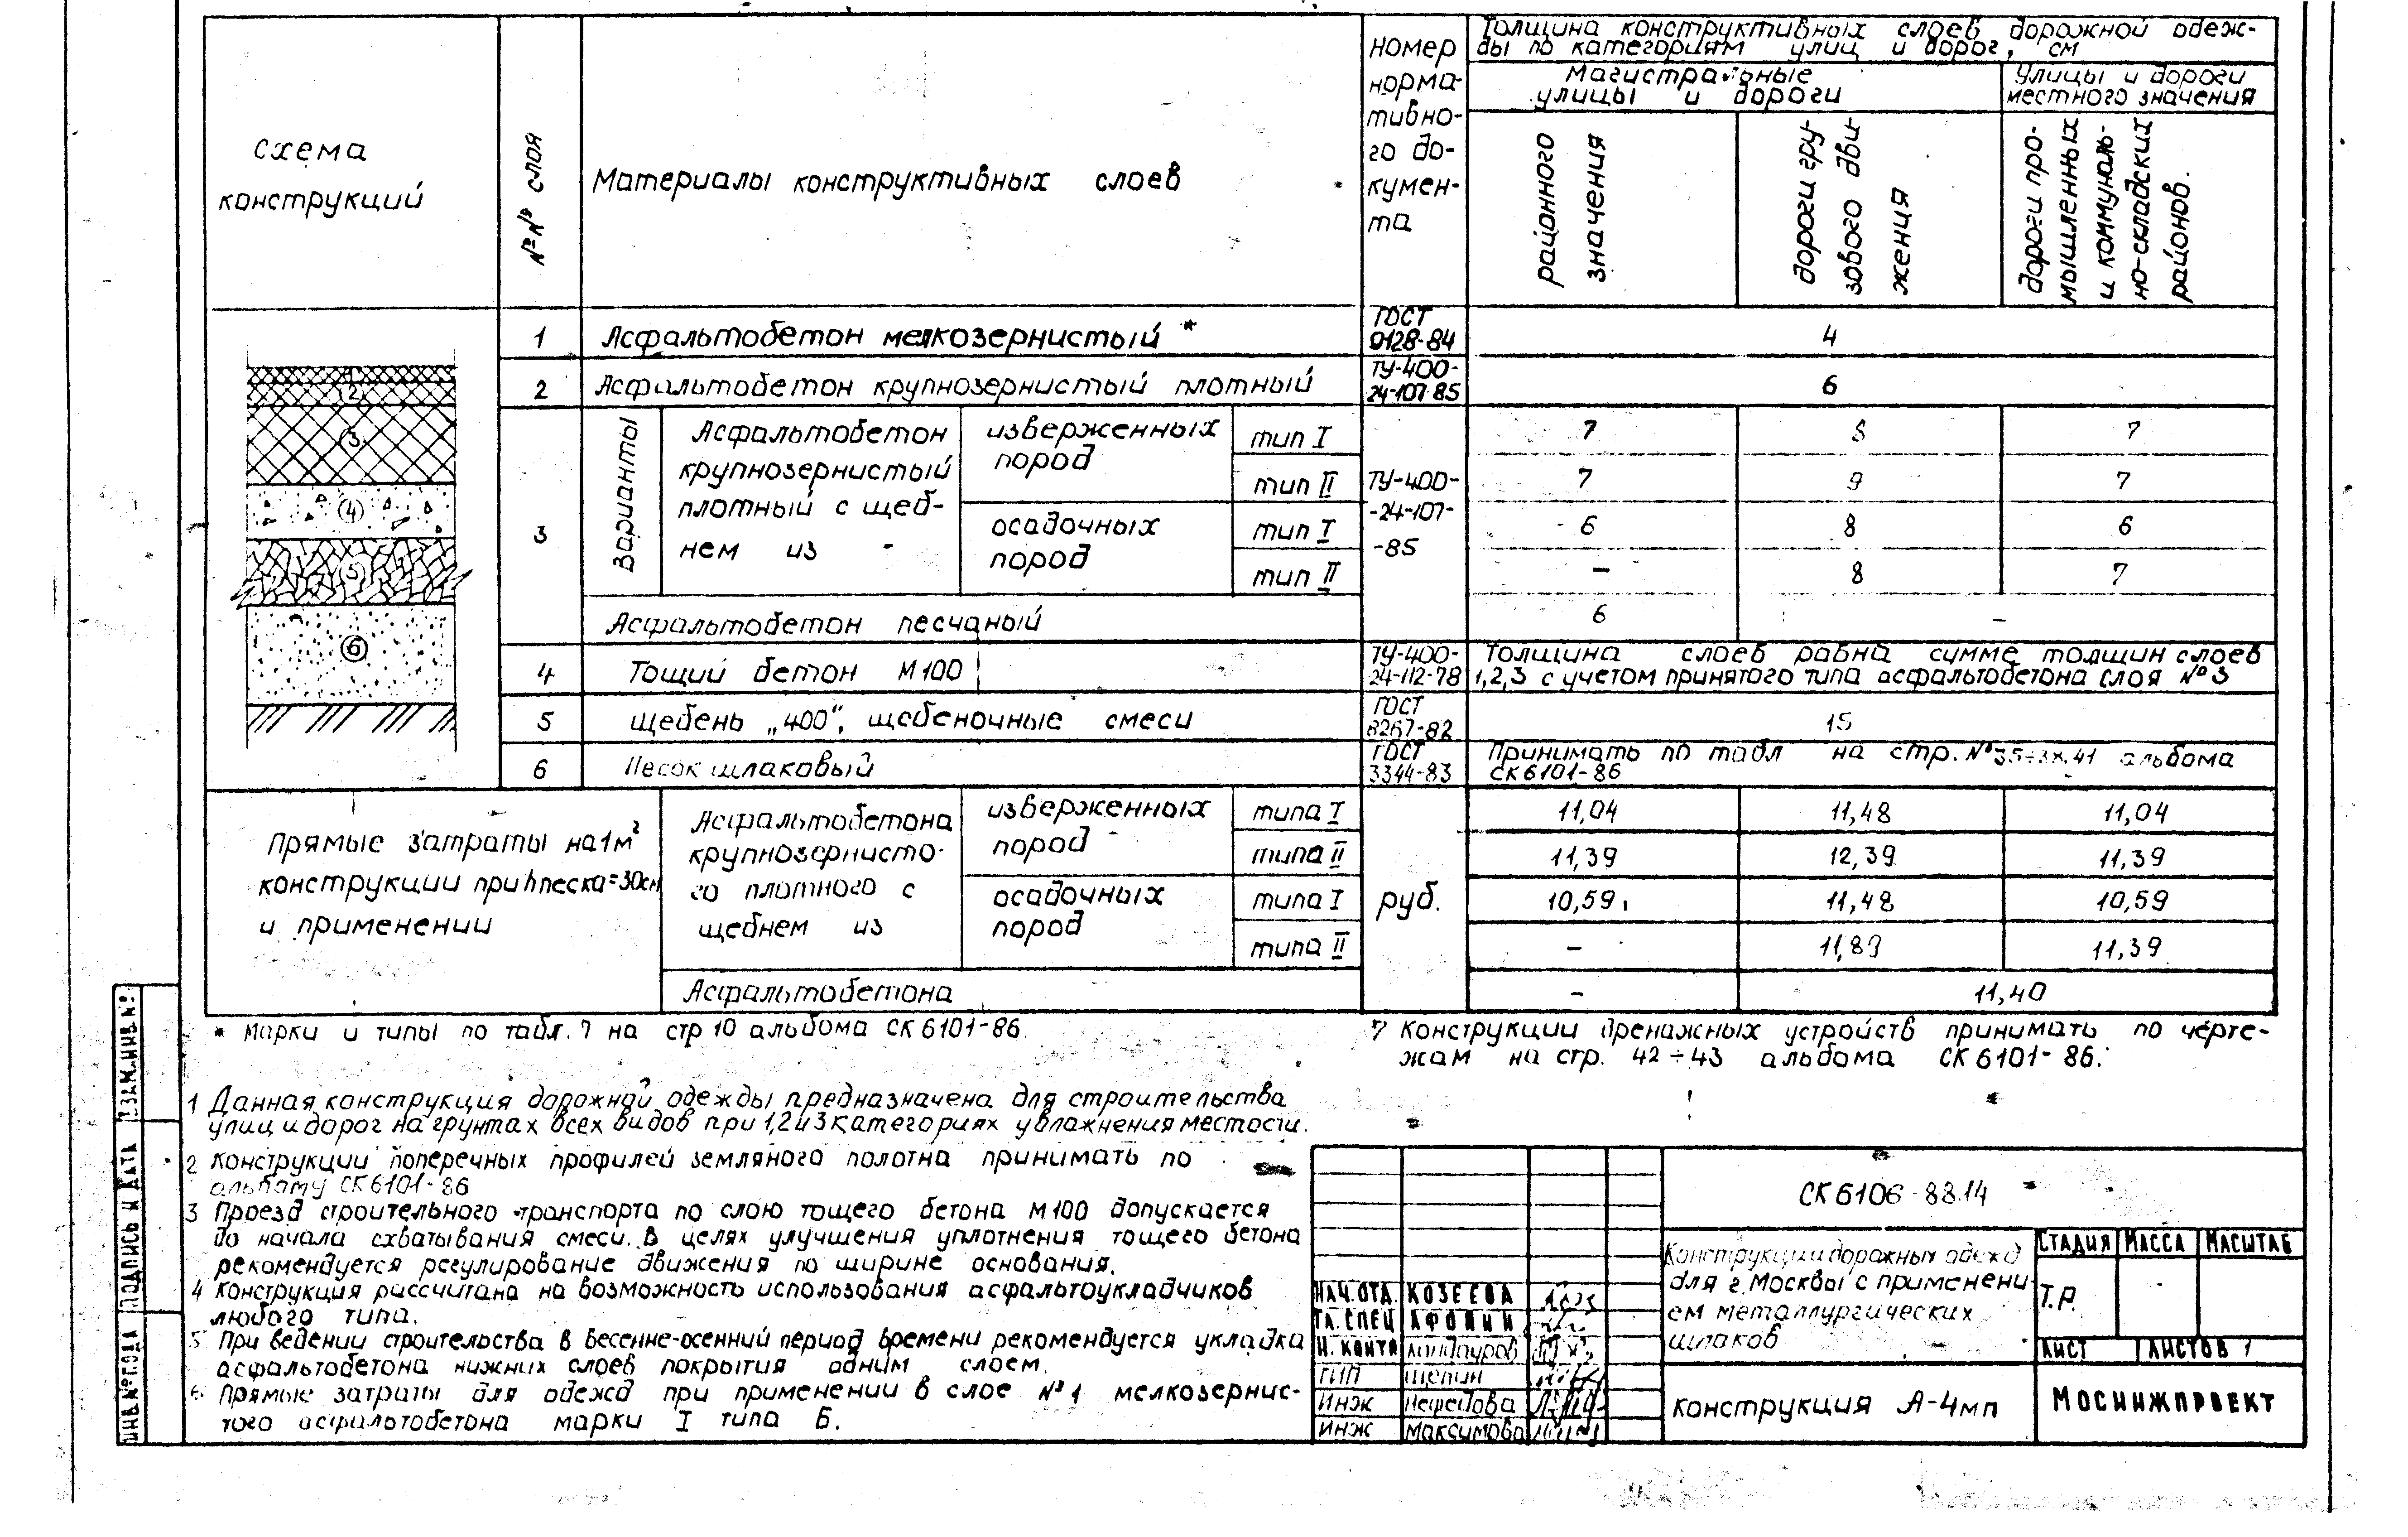 схема
конструкций
№№ слоя
Материалы конструктивных слоев
номер
норма-
тивно-
го до-
кумен-
та
Толщина конструктивных слоев дорожной одеж-
ды по категориям улиц и дорог, см
Магистральные
улицы и дороги
Улицы и дороги
местного значения
районного
значения
дороги гру-
зового дви-
жения
дороги про-
мышленных
и коммуналь-
но-складских
районов.
1 Асфальтобетон мелкозернистый * ГОСТ 9128-84 4
2 Асфальтобетон крупнозернистый плотный ТУ-400-24-107-85 6
3 Варианты
Асфальтобетон
крупнозернистый
плотный с щеб-
нем из
изверженных
пород
тип I 7 8 7
тип II 7 9 7
осадочных
пород
тип I 6 8 6
тип II - 8 7
ТУ-400-
-24-107-
-85
Асфальтобетон песчаный 6 -
4 Тощий бетон М100 ТУ-400-24-112-78 Толщина слоев равна сумме толщин слоев
1,2,3 с учетом принятого типа асфальтобетона слоя №3
5 щебень „400", щебеночные смеси ГОСТ 8267-82 15
6 Песок шлаковый ГОСТ 3344-83 Принимать по табл на стр. №35÷38,41 альбома
СК6101-86
2
3
4
5
6
Прямые затраты на 1м²
конструкции при hпеска=30см
и применении
Асфальтобетона
крупнозернисто-
го плотного с
щебнем из
изверженных
пород
типа I 11,04 11,48 11,04
типа II 11,39 12,39 11,39
осадочных
пород
типа I 10,59 11,48 10,59
типа II - 11,89 11,39
руб.
Асфальтобетона - 11,40
* Марки и типы по табл. 7 на стр 10 альбома СК6101-86.
1 Данная конструкция дорожной одежды предназначена для строительства
улиц и дорог на грунтах всех видов при 1,2 и 3 категориях увлажнения местости.
2 Конструкции поперечных профилей земляного полотна принимать по
альбому СК6101-86
3 Проезд строительного транспорта по слою тощего бетона М100 допускается
до начала схватывания смеси. В целях улучшения уплотнения тощего бетона
рекомендуется регулирование движения по ширине основания.
4 Конструкция рассчитана на возможность использования асфальтоукладчиков
любого типа.
5 При ведении строительства в весенне-осенний период времени рекомендуется укладка
асфальтобетона нижних слоев покрытия одним слоем.
6 Прямые затраты для одежд при применении в слое №1 мелкозернис-
того асфальтобетона марки I типа Б.
7 Конструкции дренажных устройств принимать по черте-
жам на стр. 42÷43 альбома СК6101-86.
СК6106-88.14
Конструкции дорожных одежд
для г. Москвы с применени-
ем металлургических
шлаков
СТАДИЯ МАССА МАСШТАБ
Т.Р. -
ЛИСТ ЛИСТОВ 1
НАЧ.ОТД. КОЗЕЕВА
ГЛ.СПЕЦ АФОНИН
Н. КОНТР Кондауров
ГИП Щепин
ИНЖ Нефедова
ИНЖ Максимова
конструкция А-4мп
МОСИНЖПРОЕКТ
ВЗАМ.ИНВ.№
ПОДПИСЬ И ДАТА
ИНВ.№ ПОДА